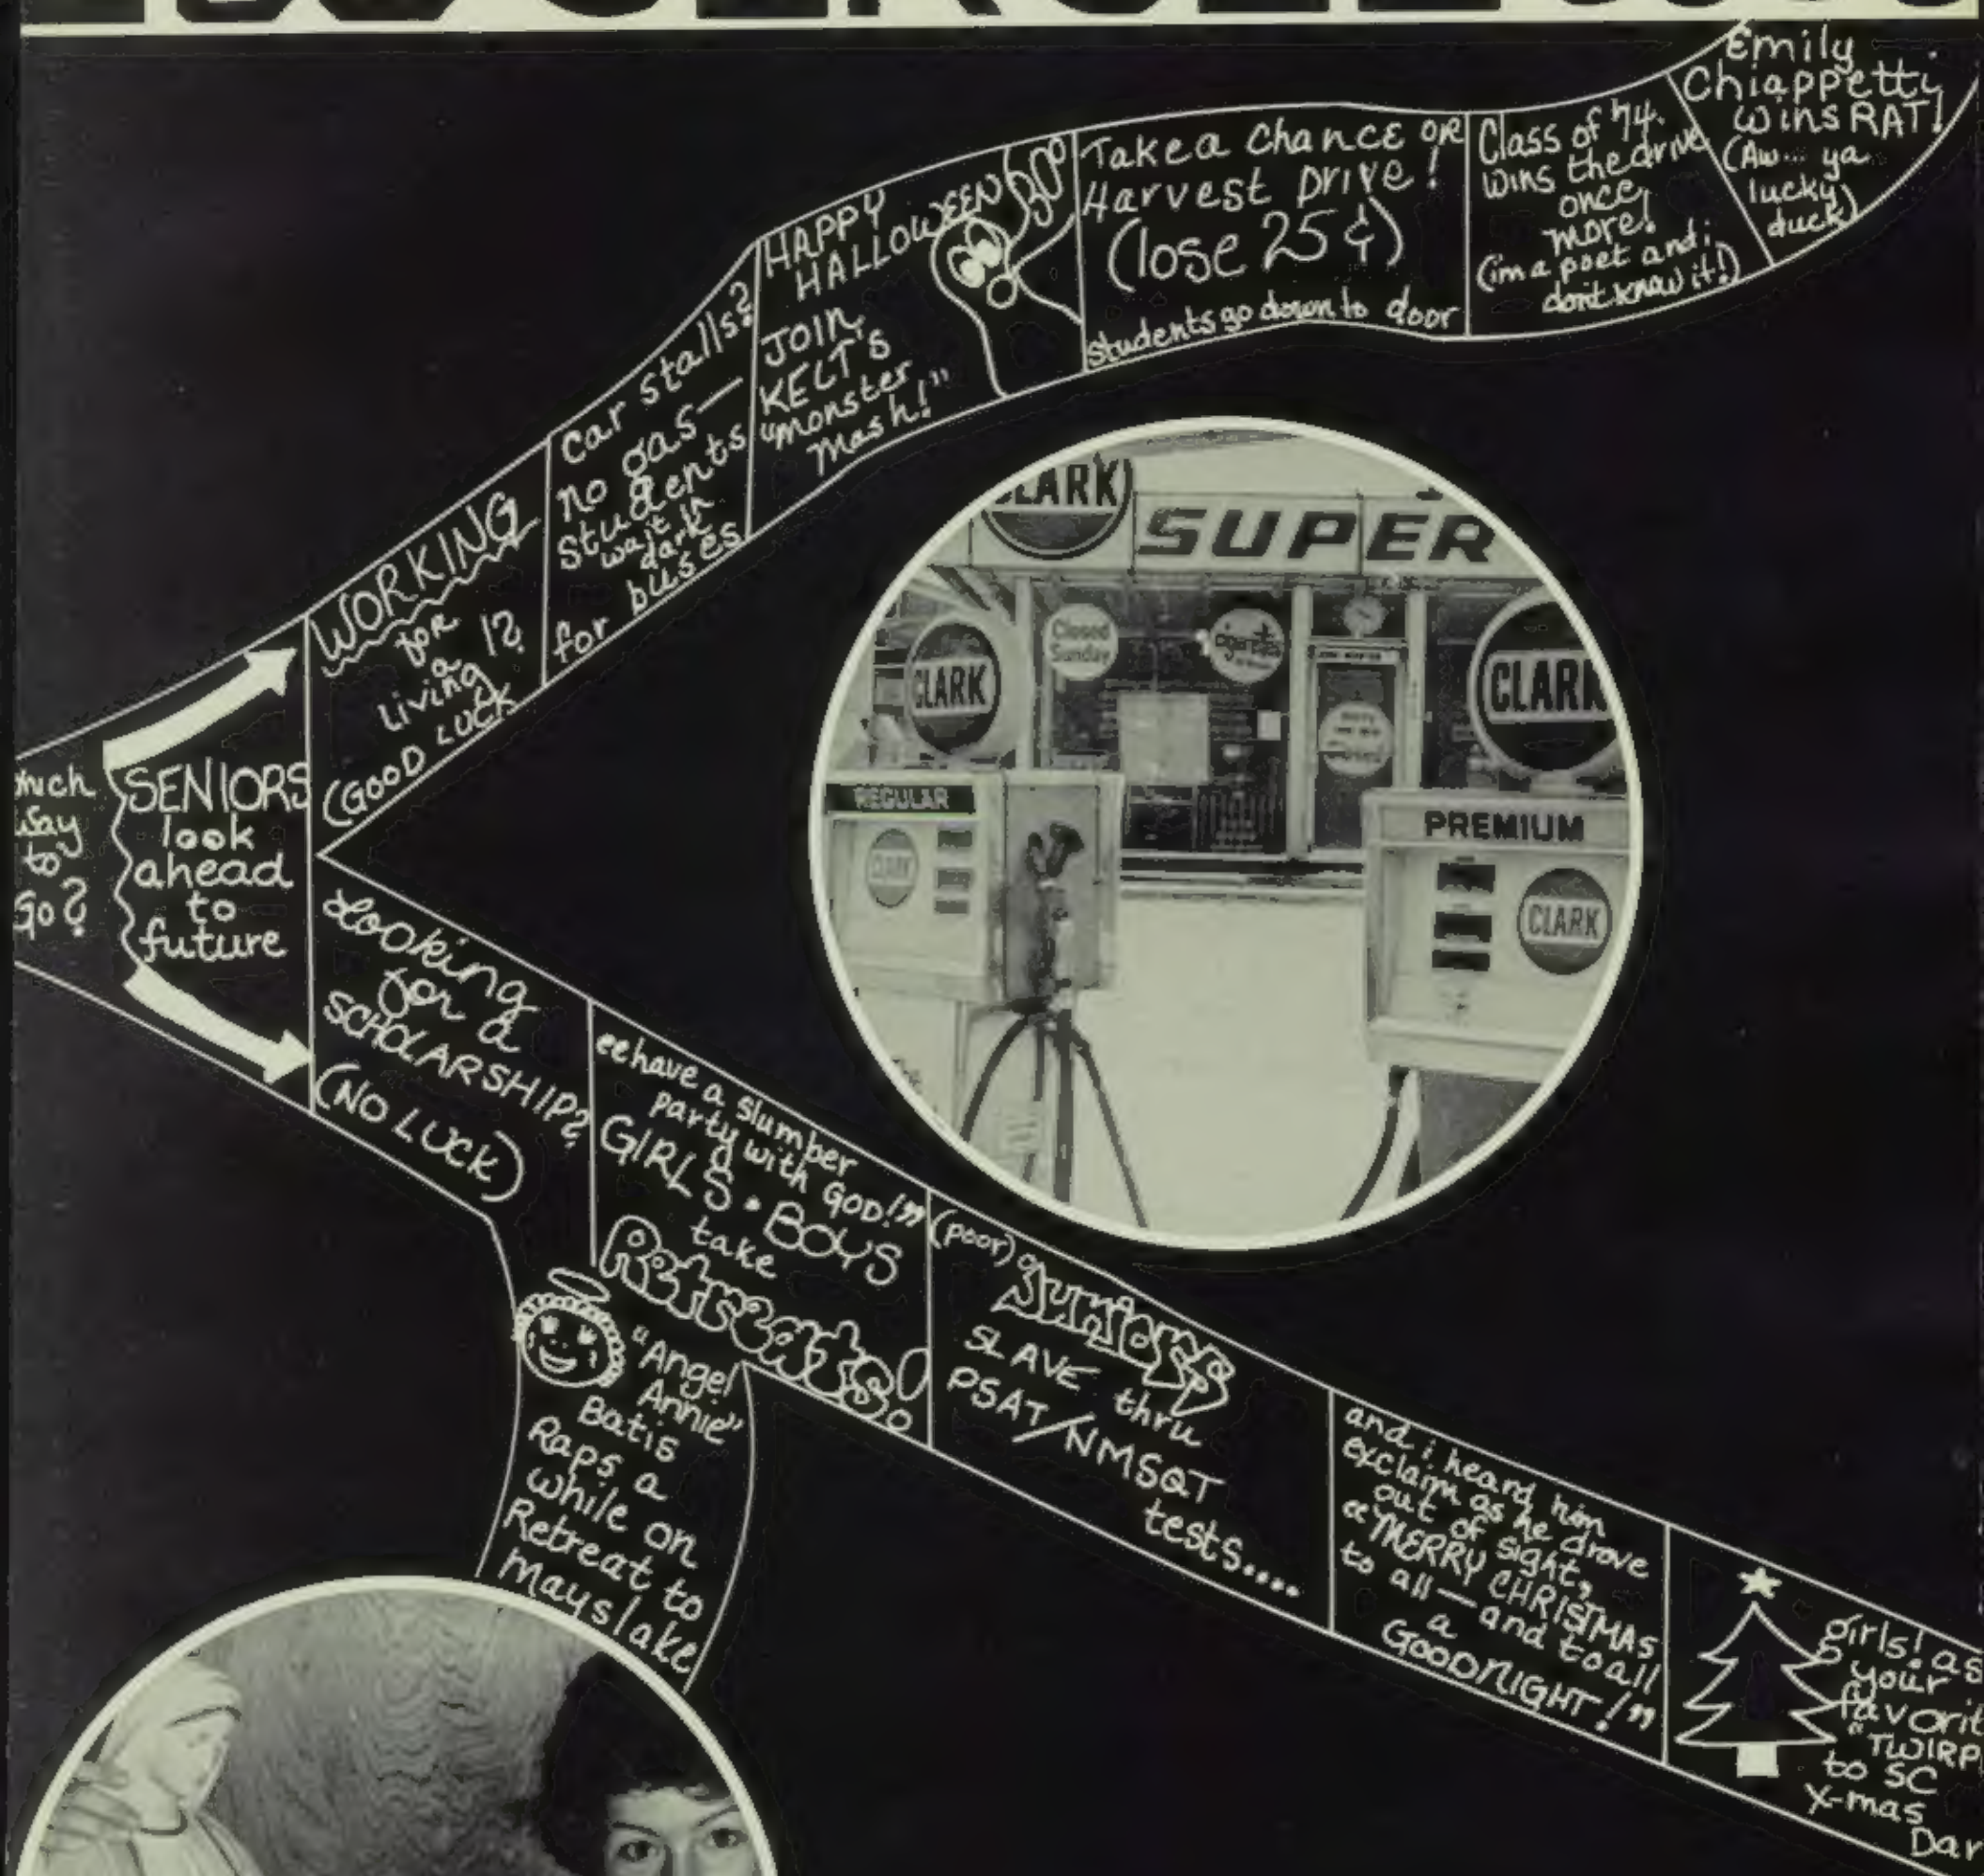 which
Way
to
Go?
SENIORS
look
ahead
to
future
WORKING
for
a
living!?
(GOOD LUCK
car stalls?
no gas—
students
wait in
dark
for buses
HAPPY
HALLOWEEN
JOIN
KELT'S
"monster
Mash!"
Take a chance OR
Harvest Drive!
(lose 25¢)
students go down to door
Class of '74.
wins the drive
once
more!
(im a poet and i
dont know it!)
Emily
Chiappetti
wins RAT!
(Aw... ya
lucky
duck)
CLARK
SUPER
Closed
Sunday
CLARK
CLARK
REGULAR
CLARK
PREMIUM
CLARK
Looking
for a
SCHOLARSHIP?
(NO LUCK)
"have a slumber
party with GOD!"
GIRLS • BOYS
take
Retreats!
"Angel
Annie"
Batis
Raps a
while on
Retreat to
mayslake
(poor)
Juniors
SLAVE thru
PSAT/NMSQT
tests....
and i heard him
exclaim as he drove
out of sight,
"MERRY CHRISTMAS
to all—and to all
a
GOODNIGHT!"
girls! as
your
favorit
"TWIRP
to SC
X-mas
Dan